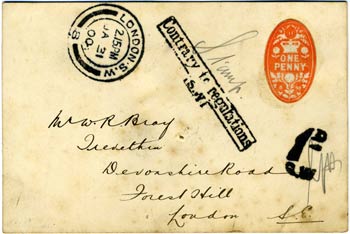 LONDON. S.W
2.15 PM
JA 31
00
8
Stamp.
Contrary to regulations
(S.W)
ONE
PENNY
Mr W. R. Bray
Tredethin
Devonshire Road
Forest Hill
London S.E.